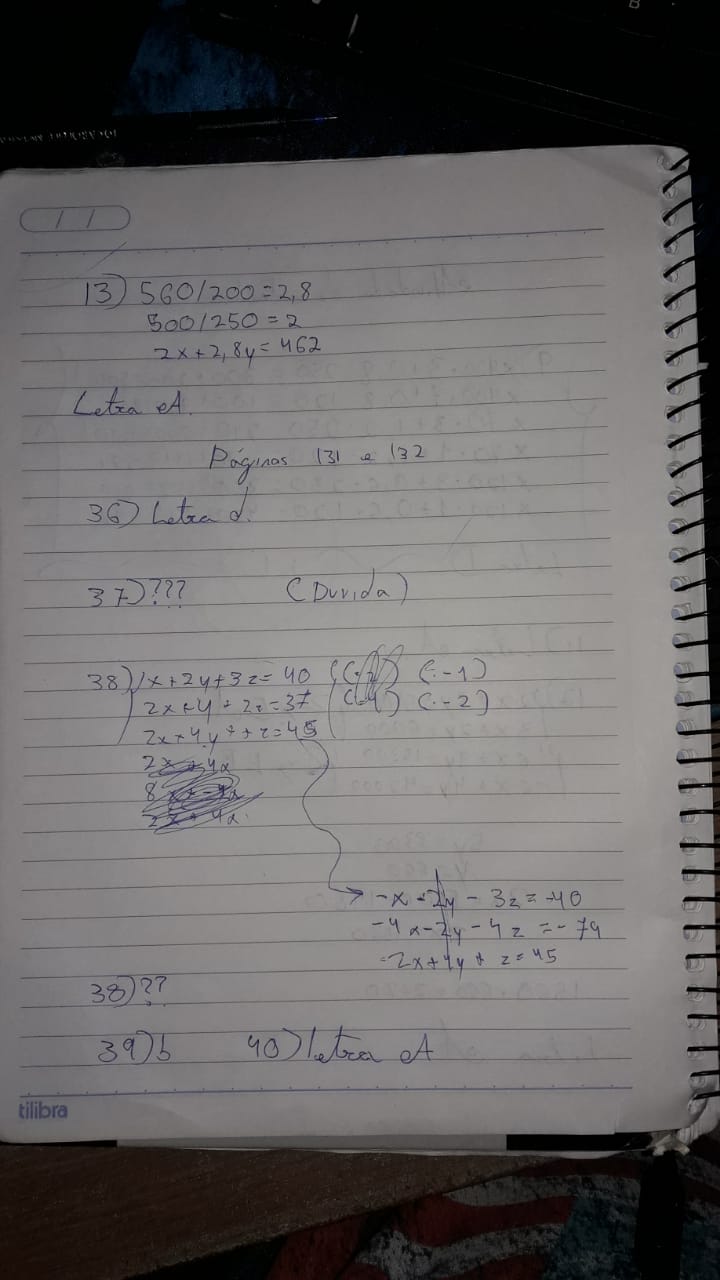 13) 560/200 = 2,8
500/250 = 2
2x + 2,8y = 462
Letra A.
Páginas 131 e 132
36) Letra d.
37) ??? (Duvida)
38) x + 2y + 3z = 40 (·-1)
2x + y + 2z = 37 (·-2)
2x + 4y + z = 45
-x - 2y - 3z = -40
-4x - 2y - 4z = - 74
2x + 4y + z = 45
38) ??
39) b 40) letra A
tilibra